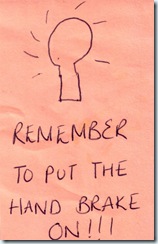 REMEMBER
TO PUT THE
HAND BRAKE
ON!!!